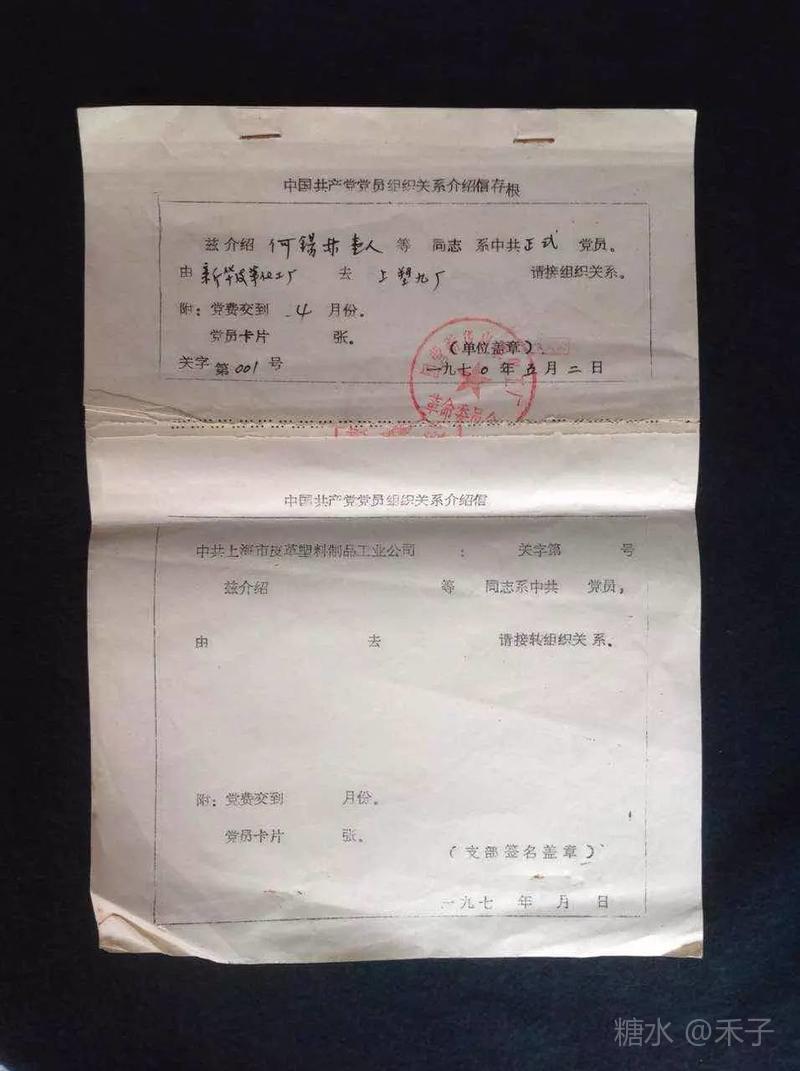 中国共产党党员组织关系介绍信存根
兹介绍 何锡 壹人 等 同志 系中共 正式 党员。
由 新华皮革化工厂 去 上塑九厂 请接组织关系。
附：党费交到 4 月份。
党员卡片 张。
（单位盖章）
关字第001号 一九七0年五月二日
革命委员会
中国共产党党员组织关系介绍信
中共上海市皮革塑料制品工业公司 ： 关字第 号
兹介绍 等 同志系中共 党员，
由 去 请接转组织关系。
附：党费交到 月份。
党员卡片 张。
（支部签名盖章）
一九七 年 月 日
糖水 @禾子